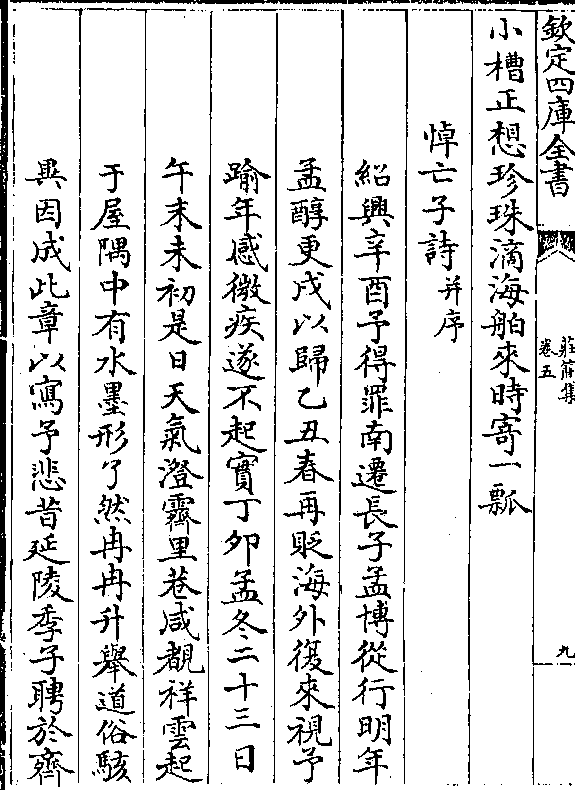 欽定四庫全書
莊簡集
卷五
九
小槽正想珍珠滴海舶來時寄一瓢
悼亡子詩并序
紹興辛酉予得罪南遷長子孟博從行明年
孟醇更戍以歸乙丑春再貶海外復來視予
踰年感微疾遂不起實丁卯孟冬二十三日
午末未初是日天氣澄霽里巷咸覩祥雲起
于屋隅中有水墨形了然冉冉升舉道俗駭
異因成此章以寫予悲昔延陵季子聘於齊